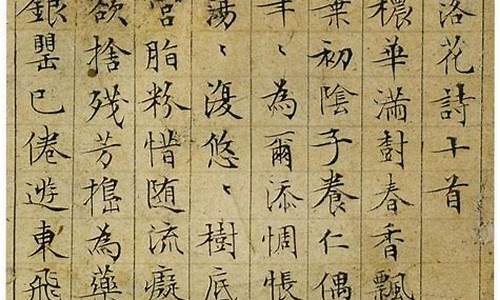 落花詩十首
穠華滿樹春香飄
葉初陰子養仁偶
年、為爾添惆悵
蕩、復悠、樹底
宮脂粉惜随流癡
欲捨殘芳搗為藥
銀罌已倦遊東飛